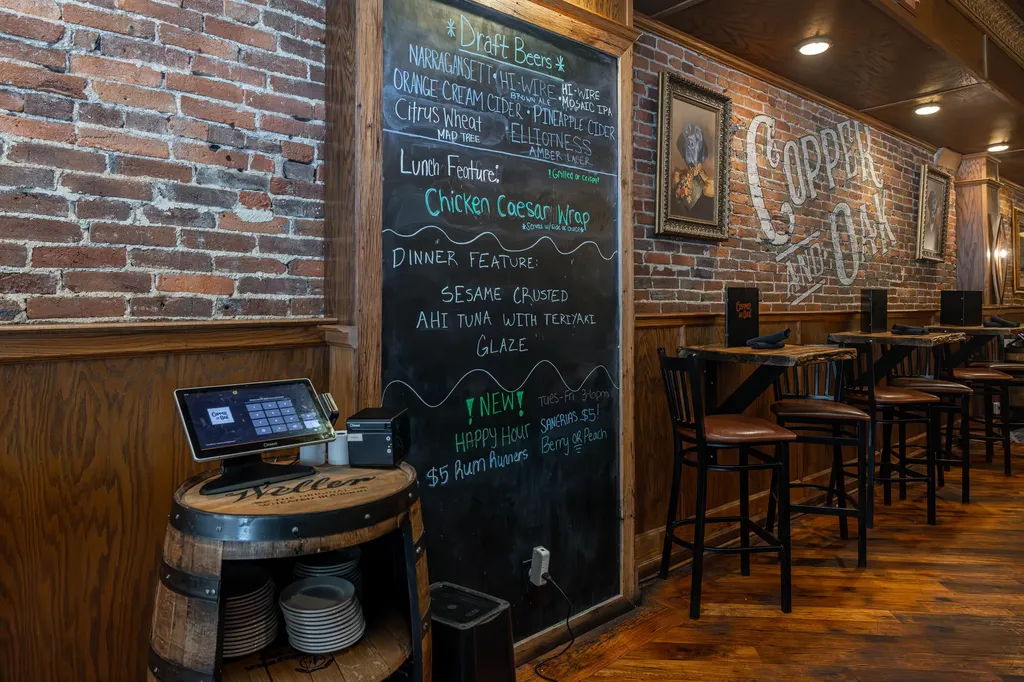 *Draft Beers*
NARRAGANSETT • HI-WIRE BROWN ALE • HI-WIRE MOSAIC IPA
ORANGE CREAM CIDER • PINEAPPLE CIDER
Citrus Wheat MAD TREE
ELLIOTNESS AMBER LAGER
Lunch Feature:
!Grilled or Crispy!
Chicken Caesar Wrap
*Served w/ side of choice*
DINNER FEATURE:
SESAME CRUSTED
AHI TUNA WITH TERIYAKI
GLAZE
!NEW!
HAPPY HOUR
$5 Rum Runners
Tues-Fri 3-6pm
SANGRIAS $5!
Berry OR Peach
COPPER
AND OAK
Weller